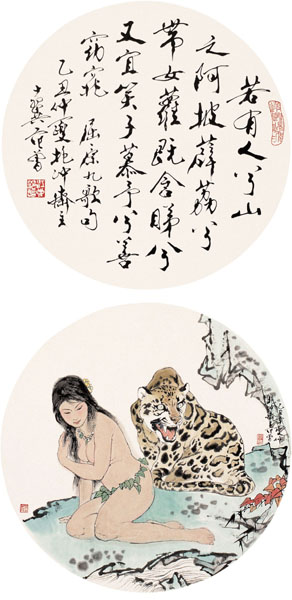 若有人兮山
之阿披薜荔兮
带女萝既含睇兮
又宜笑子慕予兮善
窈窕　屈原九歌句
乙丑仲夏抱冲斋主
十翼范曾